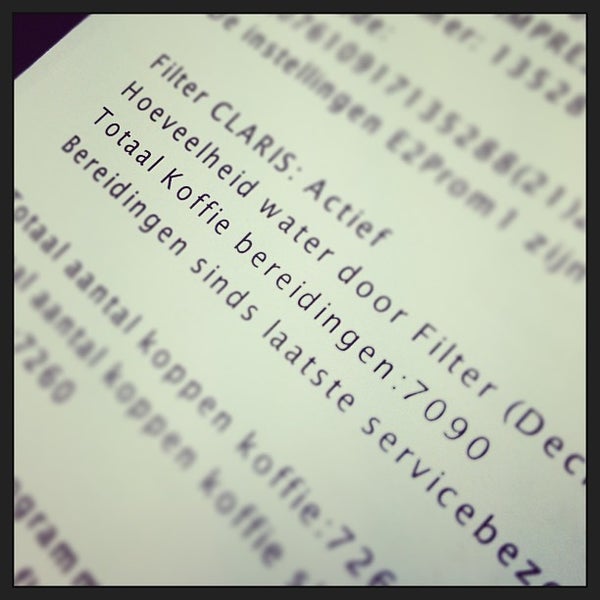 IMPRE
mer: 13528
0761091713528 8(21)2
De instellingen E2Prom1 zijn
Filter CLARIS: Actief
Hoeveelheid water door Filter (Dec
Totaal Koffie bereidingen:7090
Bereidingen sinds laatste servicebez
Totaal aantal koppen koffie:726
al aantal koppen koffie s
:7260
gramm